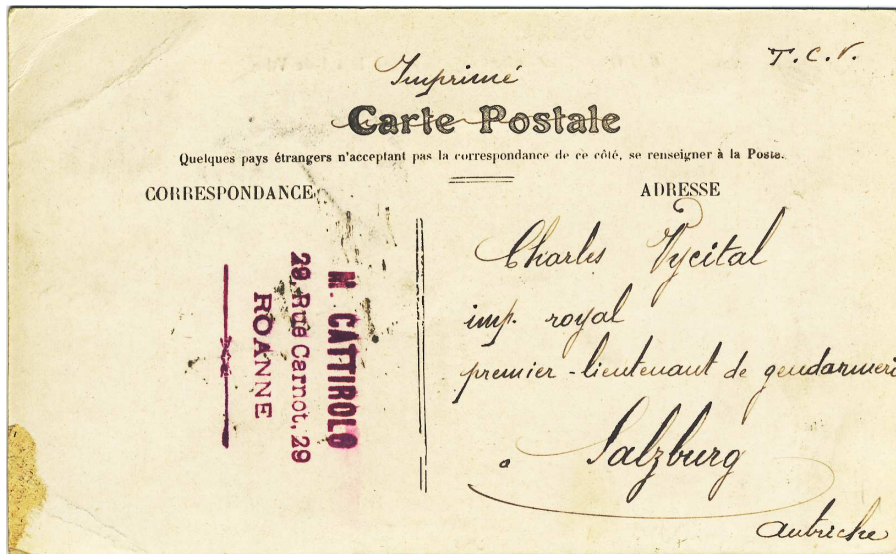 T.C.V.
Imprimé
Carte Postale
Quelques pays étrangers n'acceptant pas la correspondance de ce côté, se renseigner à la Poste.
CORRESPONDANCE
ADRESSE
M. CATTIROLO
29, Rue Carnot, 29
ROANNE
Charles Vycital
imp. royal
premier-lieutenant de gendarmeri
a Salzburg
Autriche